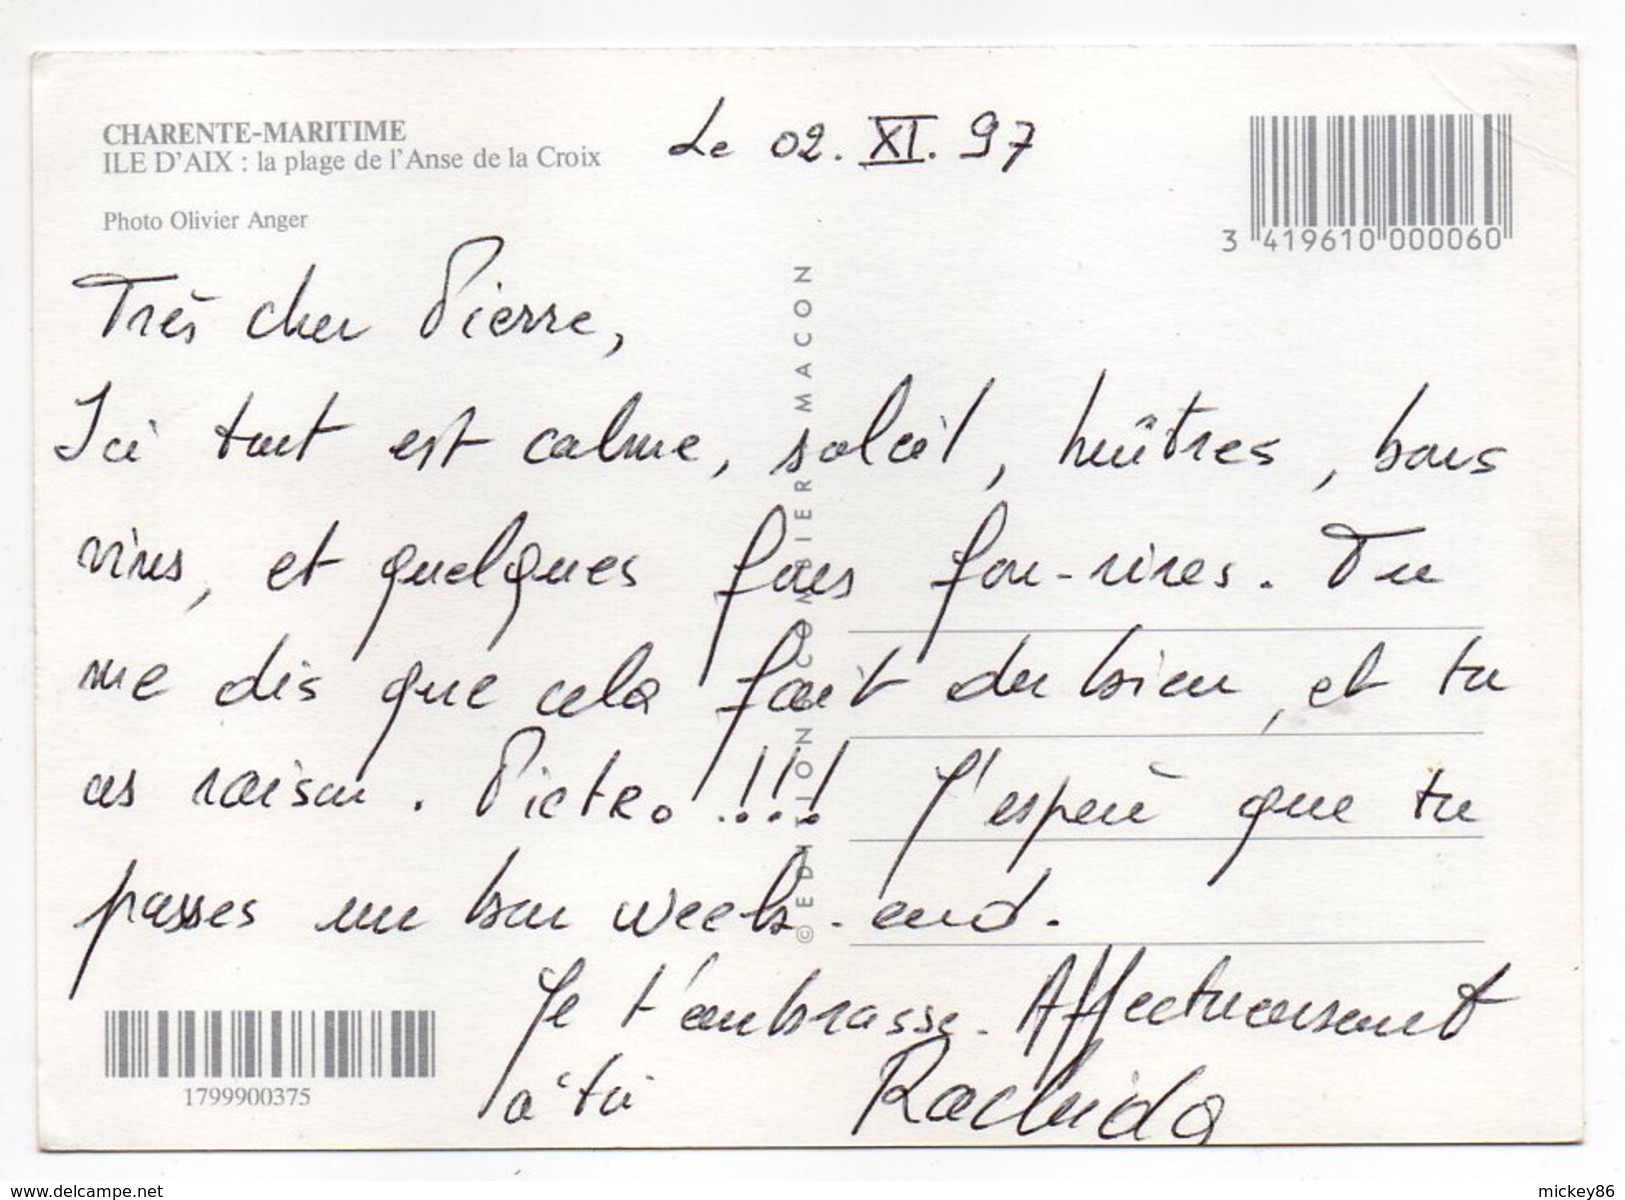 CHARENTE-MARITIME
ILE D'AIX : la plage de l'Anse de la Croix
Photo Olivier Anger
Le 02.XI.97
3 419610 000060
Très cher Pierre,
Ici tout est calme, soleil, huîtres, bons
vins, et quelques fous fou-rires. Tu
me dis que cela fait du bien, et tu
as raison. Pietro !!! J'espère que tu
passes un bon week-end.
Je t'embrasse. Affectueusement
à toi Rachida
© EDITION COMBIER MACON
1799900375
www.delcampe.net
mickey86